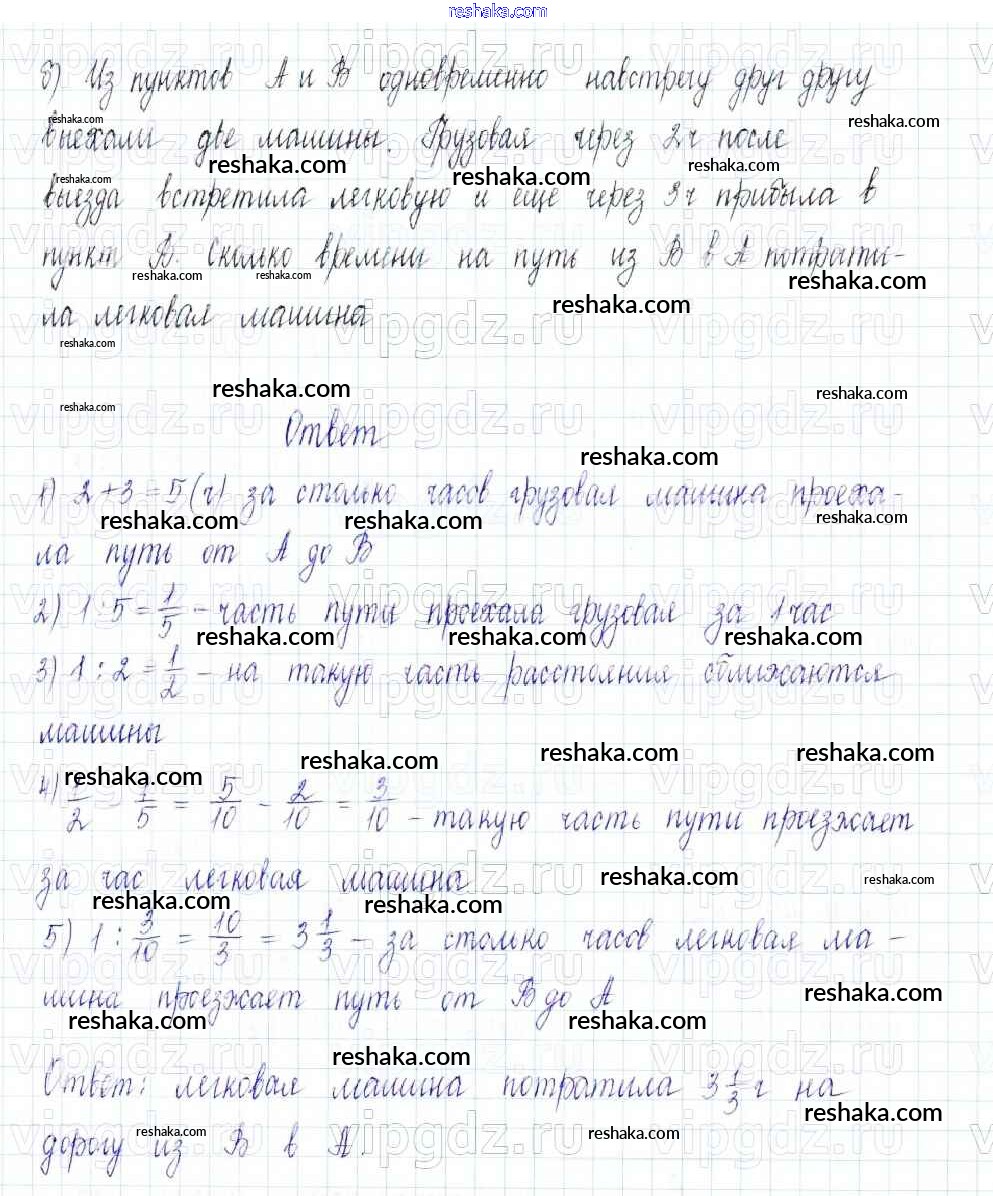 reshaka.com
б) Из пунктов А и В одновременно навстречу друг другу
выехали две машины. Грузовая через 2ч после
выезда встретила легковую и еще через 3ч прибыла в
пункт В. Сколько времени на путь из В в А потрати-
ла легковая машина
Ответ
1) 2+3=5(ч) за столько часов грузовая машина проеха-
ла путь от А до В
2) 1:5=1/5 - часть пути проехала грузовая за 1час
3) 1:2=1/2 - на такую часть расстояния сближаются
машины
4) 1/2 - 1/5 = 5/10 - 2/10 = 3/10 - такую часть пути проезжает
за час легковая машина
5) 1 : 3/10 = 10/3 = 3 1/3 - за столко часов легковая ма-
шина проезжает путь от В до А
Ответ: легковая машина потратила 3 1/3 ч на
дорогу из В в А.